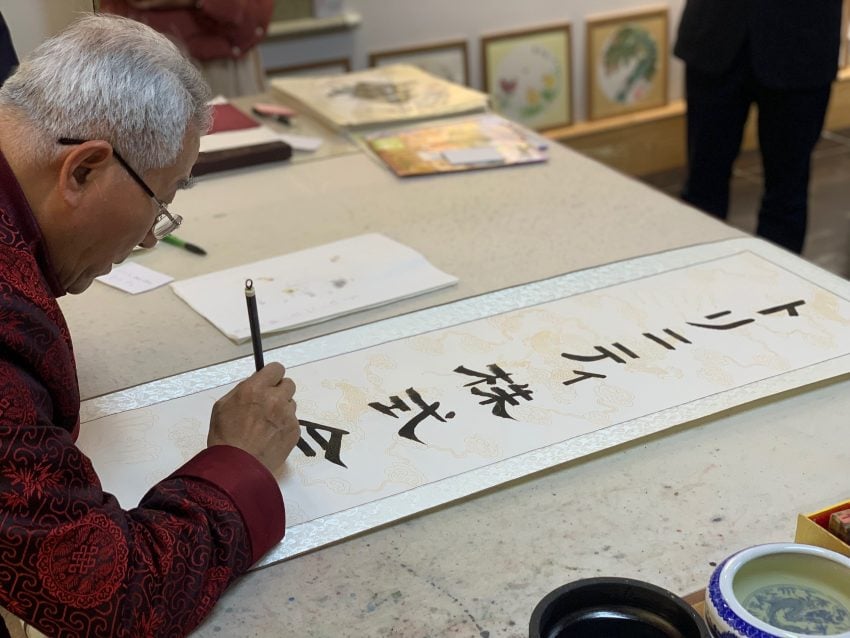 トリニティ株式会